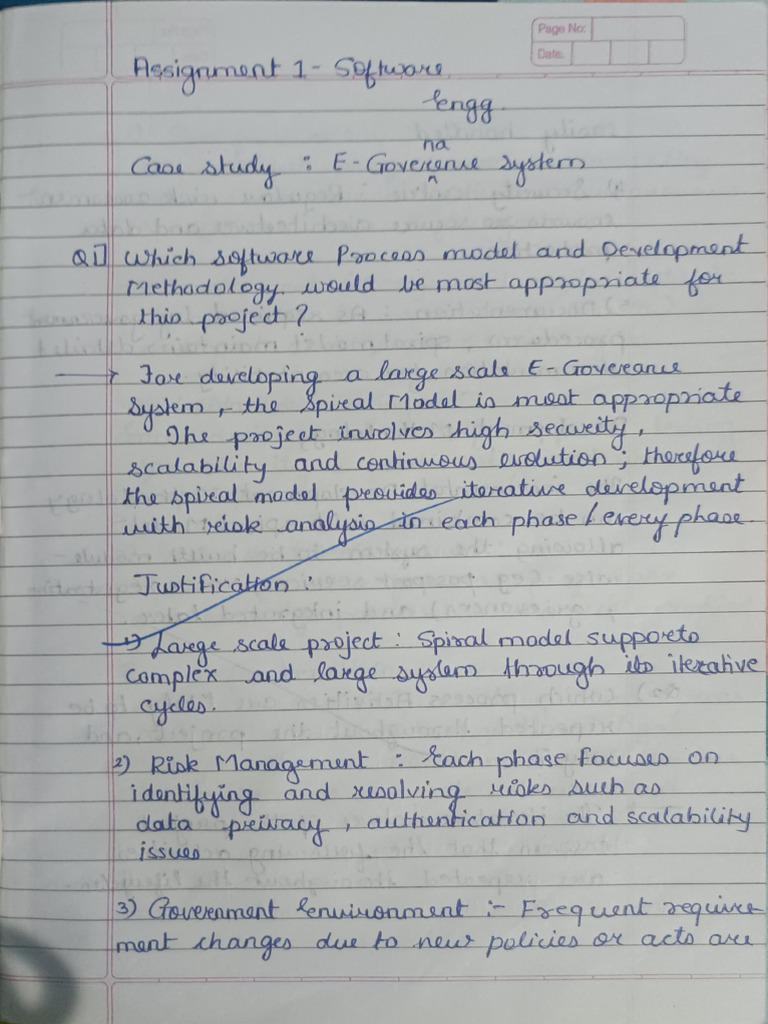 Page No:
Date:
Assignment 1 - Software
Engg.
na
Case study : E-Goverence system
^
Q1] Which software Process model and Development
Methodology would be most appropriate for
this project?
→ For developing a large scale E-Goverence
System, the Spiral Model is most appropriate
The project involves high security,
scalability and continuous evolution; therefore
the spiral model provides iterative development
with risk analysis in each phase / every phase.
Justification :
→ 1) Large scale project : Spiral model supports
complex and large system through its iterative
cycles.
2) Risk Management : Each phase focuses on
identifying and resolving risks such as
data privacy, authentication and scalability
issues
3) Government Environment :- Frequent require
ment changes due to new policies or acts are